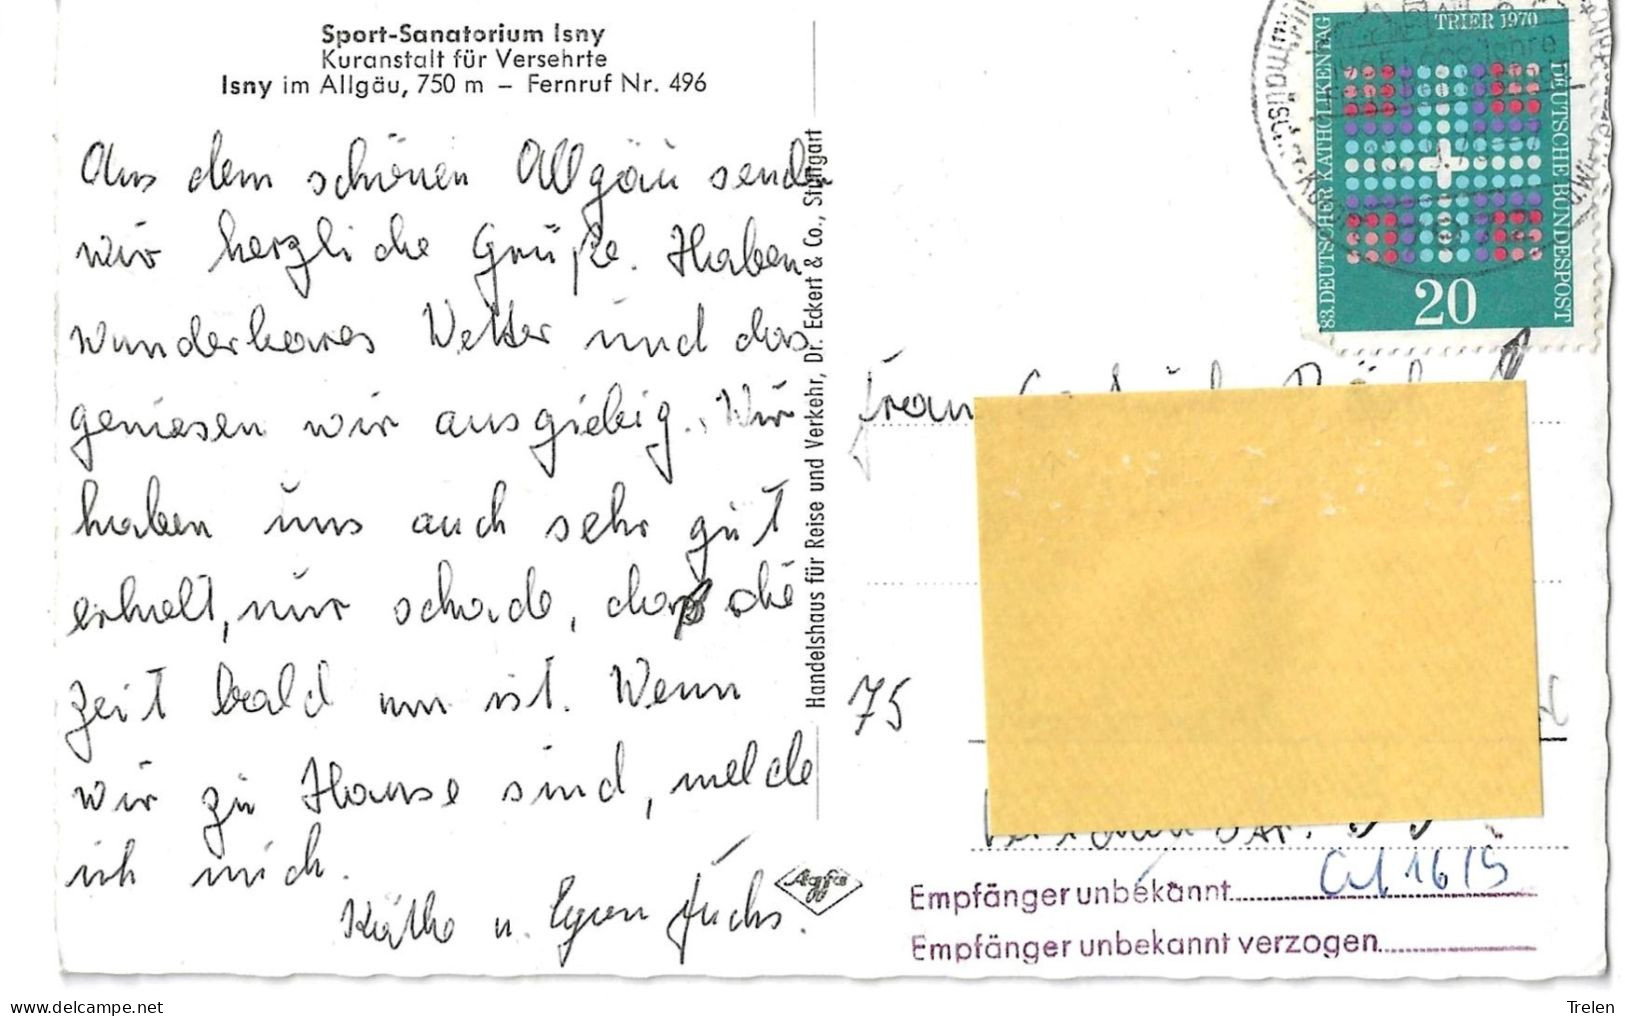 Sport-Sanatorium Isny
Kuranstalt für Versehrte
Isny im Allgäu, 750 m – Fernruf Nr. 496
Aus dem schönen Allgäu senden
wir herzliche Grüße. Haben
wunderbares Wetter und das
geniesen wir ausgiebig. Wir
haben uns auch sehr gut
erholt, nur schade, daß die
Zeit bald um ist. Wenn
wir zu Hause sind, melde
ich mich.
Käthe u. Egon Fuchs.
Handelshaus für Reise und Verkehr, Dr. Eckert & Co., Stuttgart
Agfa
TRIER 1970
83. DEUTSCHER KATHOLIKENTAG
DEUTSCHE BUNDESPOST
20
Frau
75
Empfänger unbekannt
16/9
Empfänger unbekannt verzogen
www.delcampe.net
Trelen